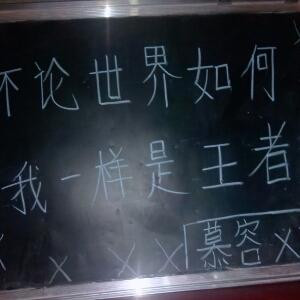 不论世界如何
我一样是王者
x x x x 慕容 x